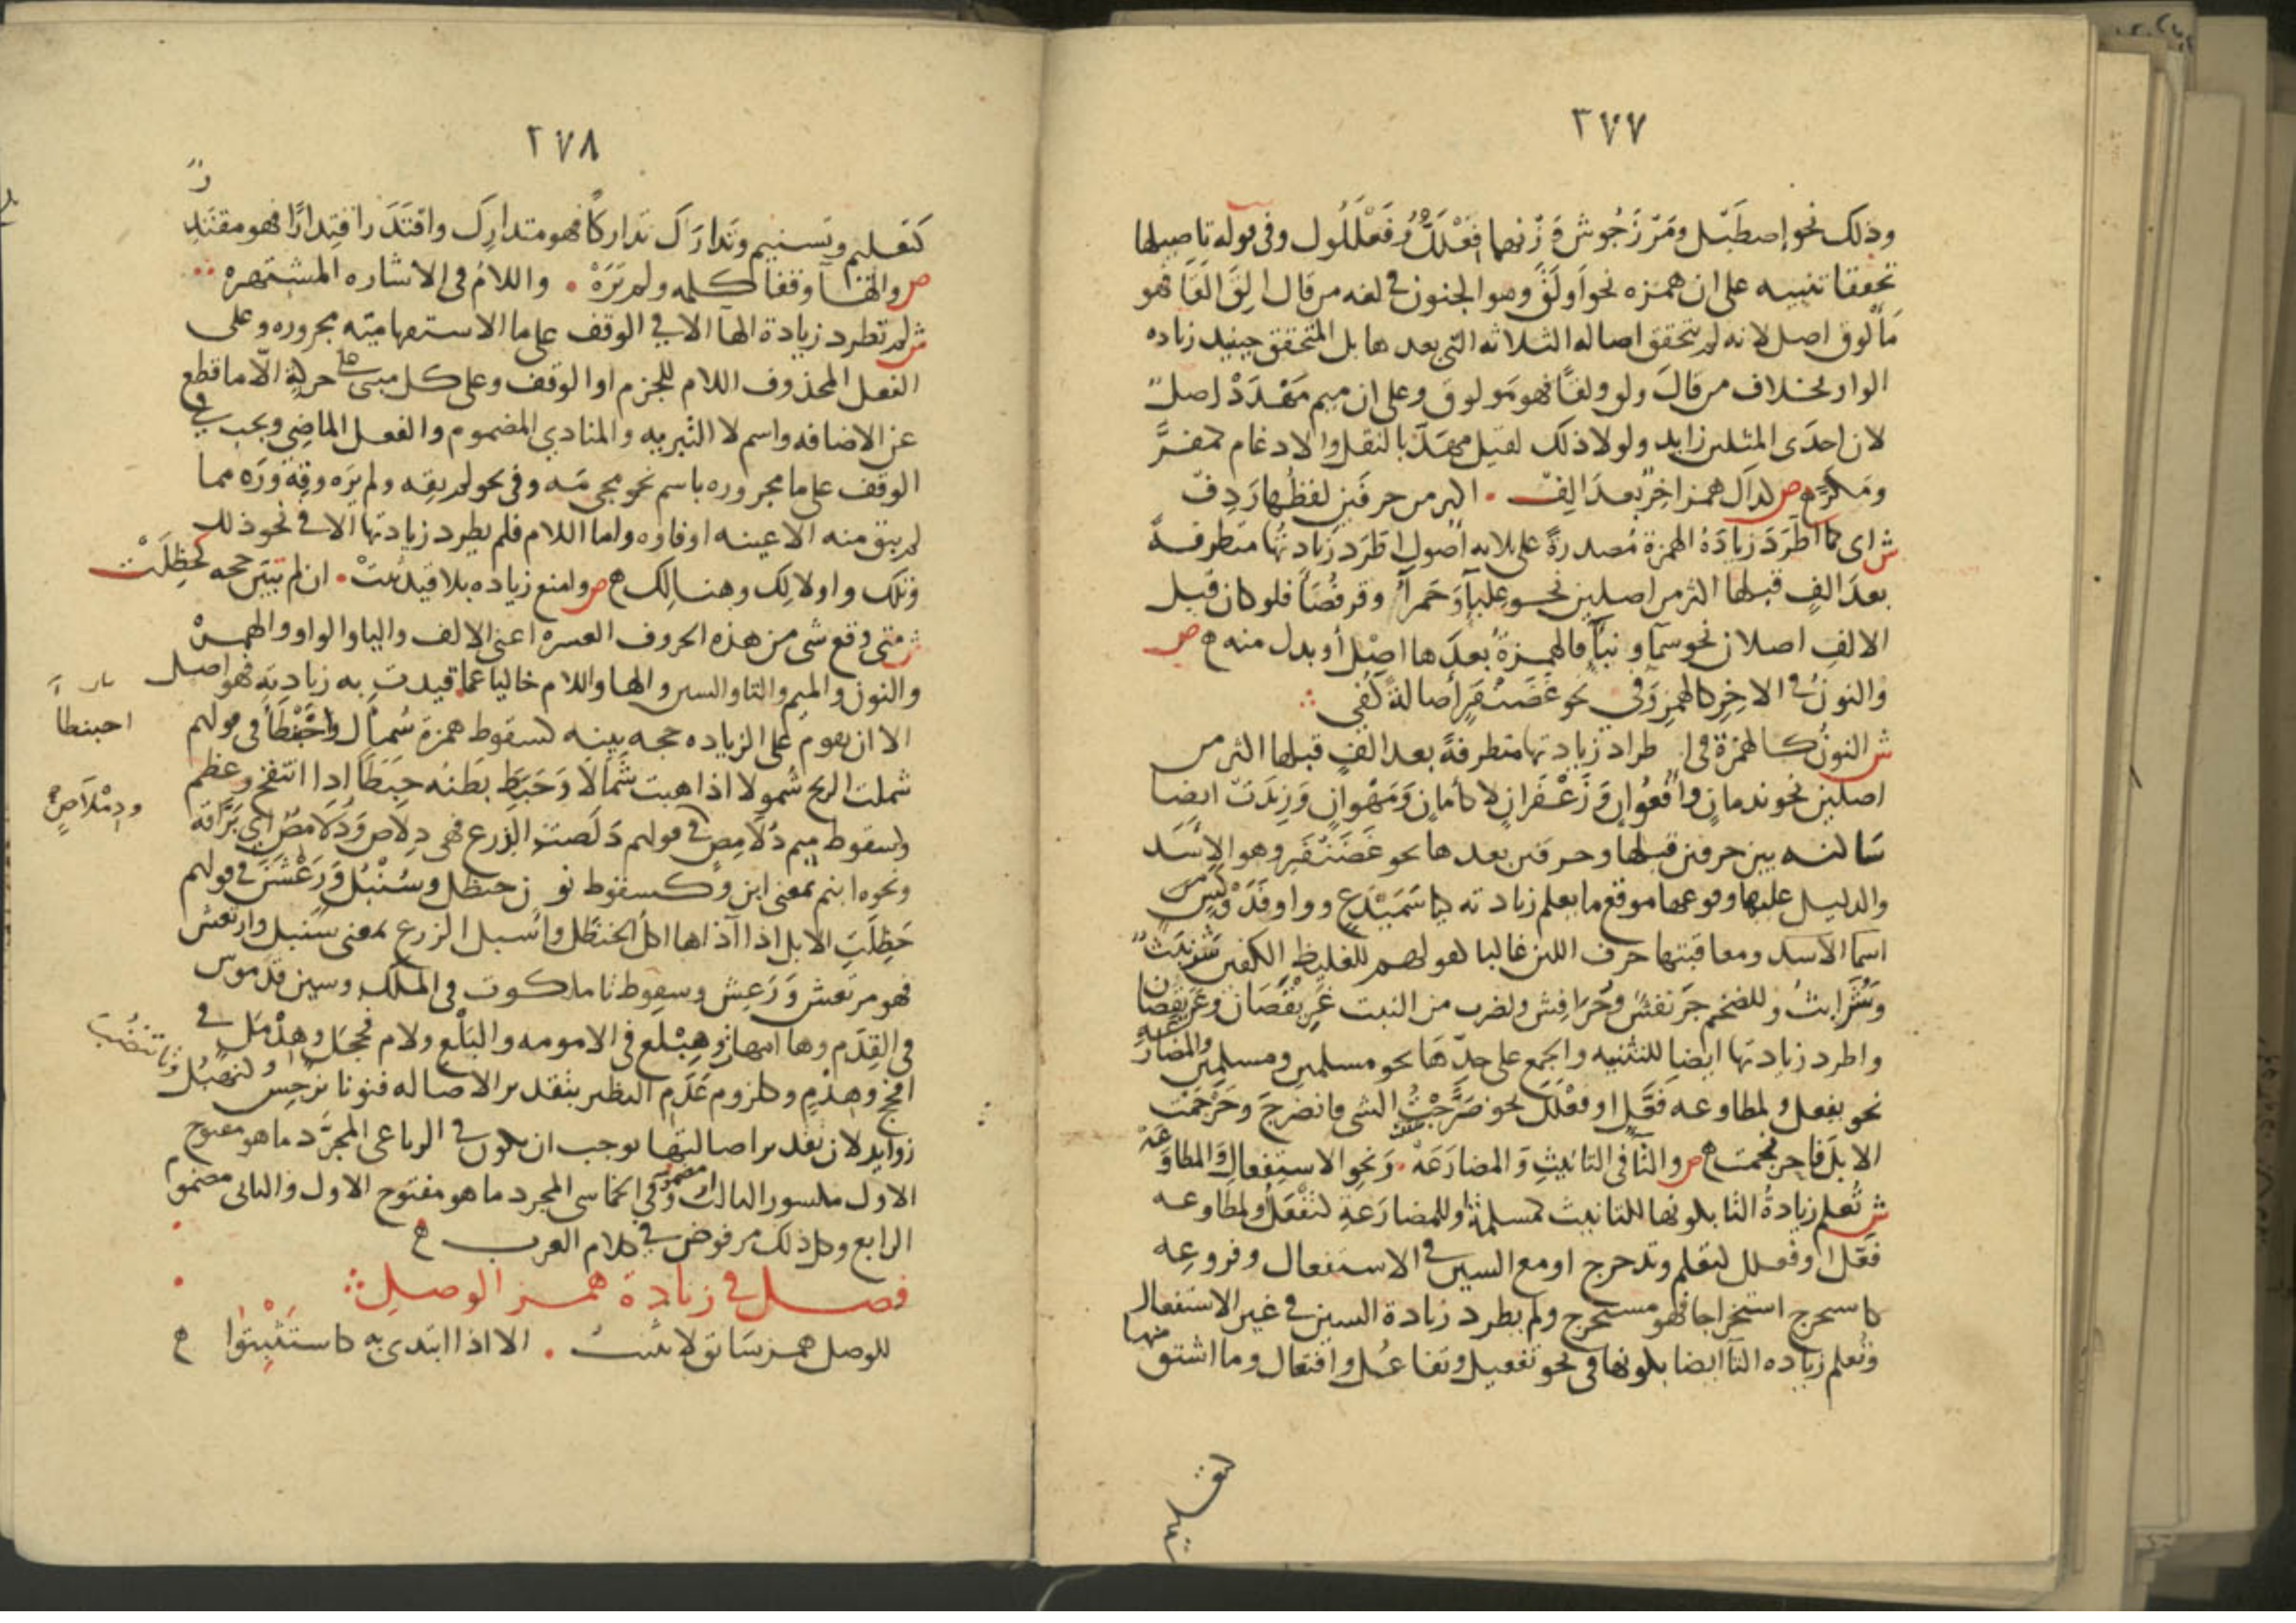 ٣٧٧
وذلك نحو إصطَبْل ومَرْزَجُوش وَزْنهما فِعْلَلٌّ وفَعْلَلُول وفي قوله تاصيلها
تحققا تنبيه على ان همزه نحو أولَق وهو الجنون في لغه من قال الِقَ القًا فهو
مَألوق اصل لانه لم يتحقق اصاله الثلاثه التي بعدها بل المتحقق حينيد زياده
الواو بخلاف من قال ولق ولقًا فهو مَولوق وعلى ان ميم مَهْدَدْ اصلٌ
لان احدى المثلين زايد ولولا ذلك لقيل مهَدّ بالنقل والادغام كمفَرّ
ومَكَرّ ص كذاك همز اخِرٌ بعدَ الِفْ ۰ اكثر من حرفَين لفظُها رَدِفْ
ش اى كما اطَّرَدَ زيادَة الهمزة مُصدرةً على ثلاثه اصول اطَّرَد زيادتُها متطرفةً
بعدَ الفٍ قبلها اكثر من اصلين نحو عِلباءَ وَحَمراءَ وقرفُصَاءَ فلو كان قبل
الالفِ اصلان نحو سماءٍ ونباءٍ فالهمزةُ بعدَها اصْل أو بدل منه ص
والنونُ في الاخِرِ كالهمزِ وَفي نحو غَضَنْفَرٍ أصالةً كُفي
ش النونُ كالهمزة في اطراد زيادتها متطرفةً بعد الفٍ قبلها اكثر من
اصلين نحو ندمانٍ وأُفعُوانٍ وَزَعْفَرانٍ لا كأمانٍ وَمَهْوانٍ وَزِيدَتْ ايضا
ساكنه بين حرفين قبلها وحرفين بعدها نحو غَضَنْفَرٍ وهو الاسد
والدليل عليها وقوعها موقع ما يعلم زيادته كياء سَمَيْدَعٍ وواو فَدَوْكَسٍ من
اسما الاسد ومعاقبتها حرف اللين غالبا كقولهم للغليظ الكفين شَرَنْبَثٌ
وشُرَابثٌ وللضخم جَرَنفَشٌ وجُرَافِشٌ ولضرب من النبت عَرَنْقُصَان وعَرَيْقُصَان
واطرد زيادتها ايضا للتثنيه والجمع على حدّها نحو مسلمين ومسلمِين والمضارعه
نحو نفعل ولمطاوعه فَعَّل او فعْلَلَ نحو ضَرَّحْتُ الشي فانضرحَ وحَرْجَمْتُ
الابلَ فاحرنجمت ص والتّا في التانيثِ وَالمضارَعَهْ ۰ وَنحو الاستِفعالِ وَالمطاوَعَهْ
ش تُعلم زيادةُ التا بكونها للتانيث كمسلمةٌ وللمضارَعَةِ كتَفْعَلُ ولمطاوعه
فعّل او فعلل كتعلم وتدحرج او مع السين في الاستفعال وفروعِه
كاستخرج استخراجا فهو مستخرج ولم يطرد زيادة السين في غير الاستفعال
وتُعلم زياده التا ايضا بكونها في نحو تفعيل وتفاعُل وافتعال وما اشتق منها
٢٧٨
كتَعليم وتَسنيم وتَدارَكَ تدارُكًا فهو متدارِكَ واقتَدَر اقتِدارًا فهو مقتَدِرٌ
ص والهآ وقفًا كلمه ولم تَرَهْ ۰ واللامُ في الاشاره المشتهره
ش لم تطرد زيادة الها الا في الوقف على ما الاستفهاميّه مجروره وعلى
الفعل المحذوف اللام للجزم او الوقف وعلى كل مبنى على حركة الّا ما قطع
عن الاضافه واسم لا التبريه والمنادي المضموم والفعل الماضِي ويجب في
الوقف على ما مجروره باسم نحو مجى مَه وفي نحو لم يقِه ولم يَرَه وقِهْ ورَه مما
لم يبق منه الا عينه او فاوه واما اللام فلم يطرد زيادتها الا في نحو ذلك
وتلك واولالك وهنالك ص وامنع زياده بلا قيد ثبَتْ ۰ ان لم تبيَّن حجه كحَظِلَتْ
ش متى وقع شى من هذه الحروف العشره اعنى الالف واليا والواو والهمزة
والنون والميم والتا والسين والها واللام خاليا عما قيدت به زيادته فهو اصل
الا ان يقوم على الزياده حجه بينه كسقوط همزة شَمأل واحْبَنْطَأ في قولهم
شملت الريح شُمولا اذا هبت شَمالا وَحَبِطَ بطنُه حَبَطًا اذا انتفخ وعظم
وكسقوط ميم دُلامِصٍ في قولهم دَلَصتِ الدِرع فهى دِلاص وَدُلامصٌ اي بَرَّاقة
ونحوه ابنم بمعنى ابن وكسقوط نون حنظل وسُنْبُل وَرَعْشَنٍ في قولهم
حَظِلَتِ الابل اذا آذاها اكل الحنظل وأسبل الزرع بمعنى سَنبل وارتعش
فهو مرتعش وَرَعِش وسقوط تا ملكوت في الملك وسين قُدموس
في القِدَم وها امهات وهِبْلَع في الامومه والبَلْع ولام فحجَل وهِدْمَل في
افحج وهِدْمٍ وكلزوم عَدَمِ النظير بتقدير الاصاله فنونا نَرجِس وكَنَهْبُل وتا تنضُب
زوايد لان تقدير اصالتها يوجب ان يكون في الرباعى المجرّد ما هو مفتوح
الاول مكسور الثالث او مضمومه وفي الخماسى المجرد ما هو مفتوح الاول والثانى مضموم
الرابع وكل ذلك مرفوض في كلام العرب
فصل في زيادة همز الوصلِ
للوصل همز سَابق لا يثبتُ ۰ الا اذا ابتدى به كاستَثْبِتُوا
احبنطأ
ودِمْلَاصٍ